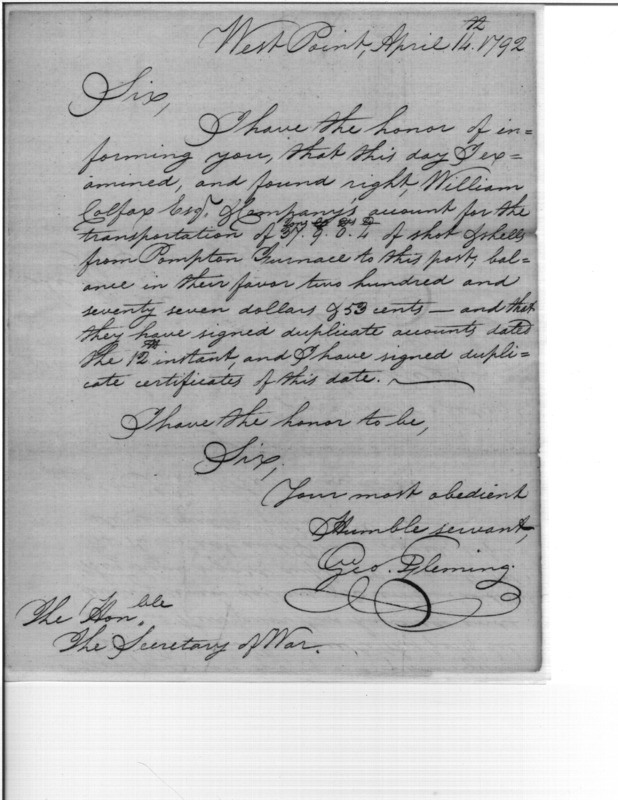 West Point, April 14th. 1792
Sir,
I have the honor of in=
forming you, that this day I ex=
amined, and found right, William
Colfax Esqr. & Company's account for the
transportation of 37. 9. 3. 4 of shot & shells
from Pompton Furnace to this post; bal=
ance in their favor two hundred and
seventy seven dollars & 53 cents — and that
they have signed duplicate accounts dated
the 12th instant, and I have signed dupli=
cate certificates of this date.
I have the honor to be,
Sir,
Your most obedient
Humble servant,
Geo. Fleming.
The Honble.
The Secretary of War.